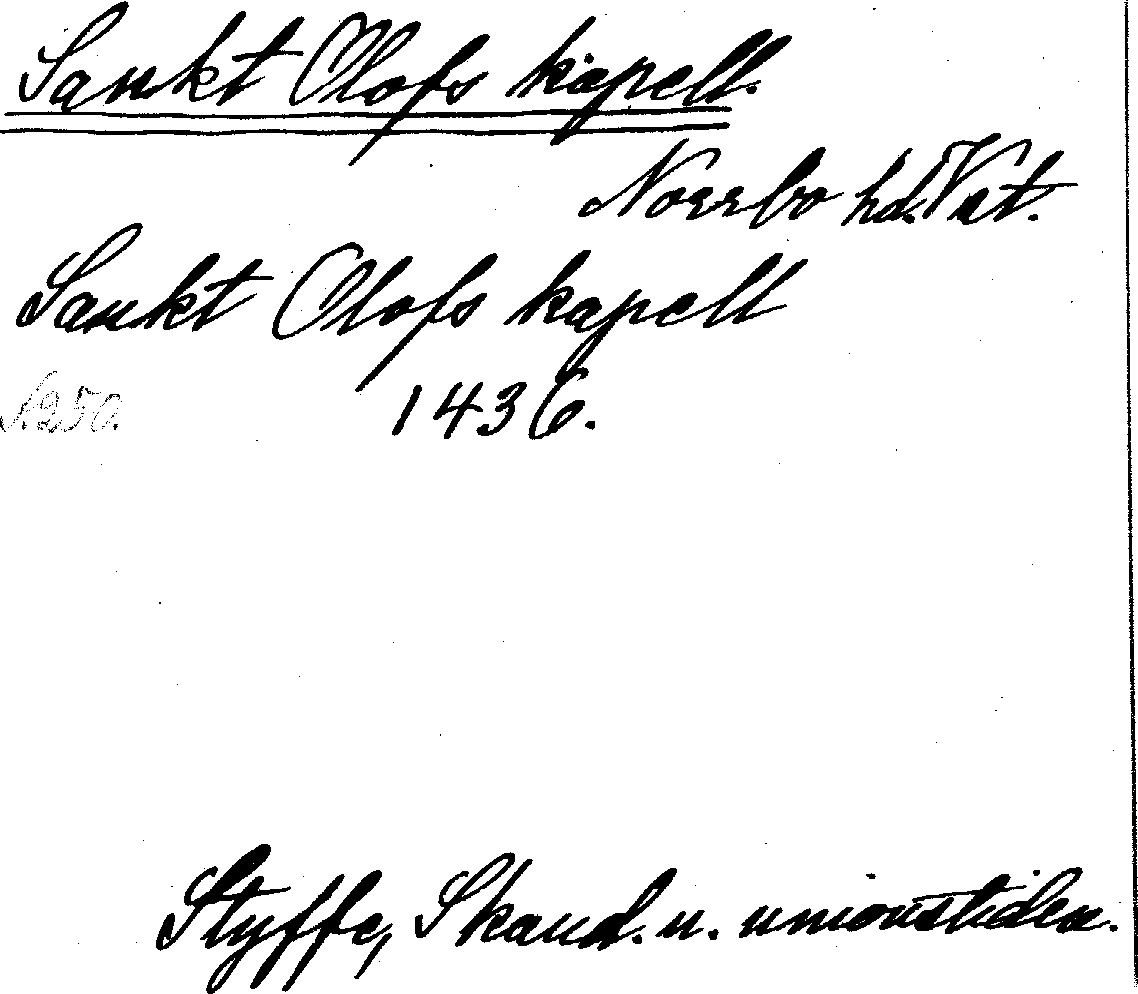 Sankt Olofs kapell.
Norrbo hd. Vst.
Sankt Olofs kapell
S. 250. 1436.
Styffe, Skand. u. unionstiden.